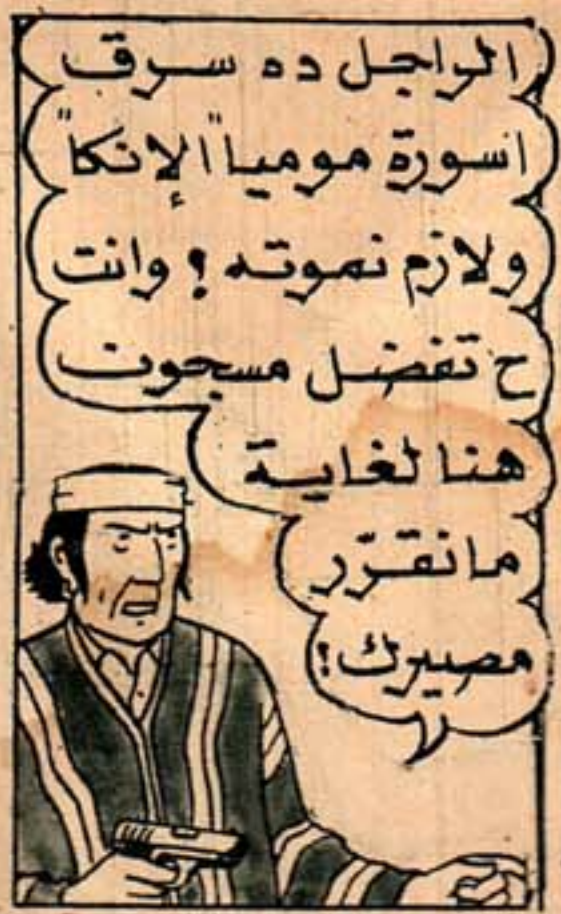 الراجل ده سرق
اسورة موميا "الإنكا"
ولازم نموته ! وانت
ح تفضل مسجون
هنا لغاية
ما نقرّر
مصيرك !